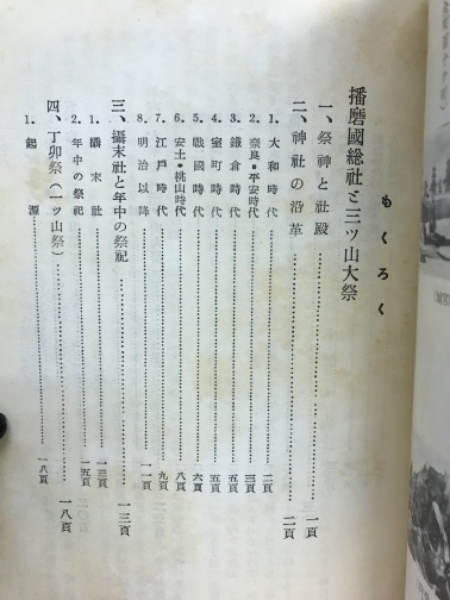 もくろく
播磨國総社と三ツ山大祭
一、祭神と社殿 一頁
二、神社の沿革 二頁
1. 大和時代 二頁
2. 奈良・平安時代 三頁
3. 鎌倉時代 五頁
4. 室町時代 五頁
5. 戰國時代 六頁
6. 安土・桃山時代 八頁
7. 江戸時代 九頁
8. 明治以降 一一頁
三、攝末社と年中の祭祀 一三頁
1. 攝末社 一三頁
2. 年中の祭祀 一五頁
四、丁卯祭(一ツ山祭) 一八頁
1. 起源 一八頁